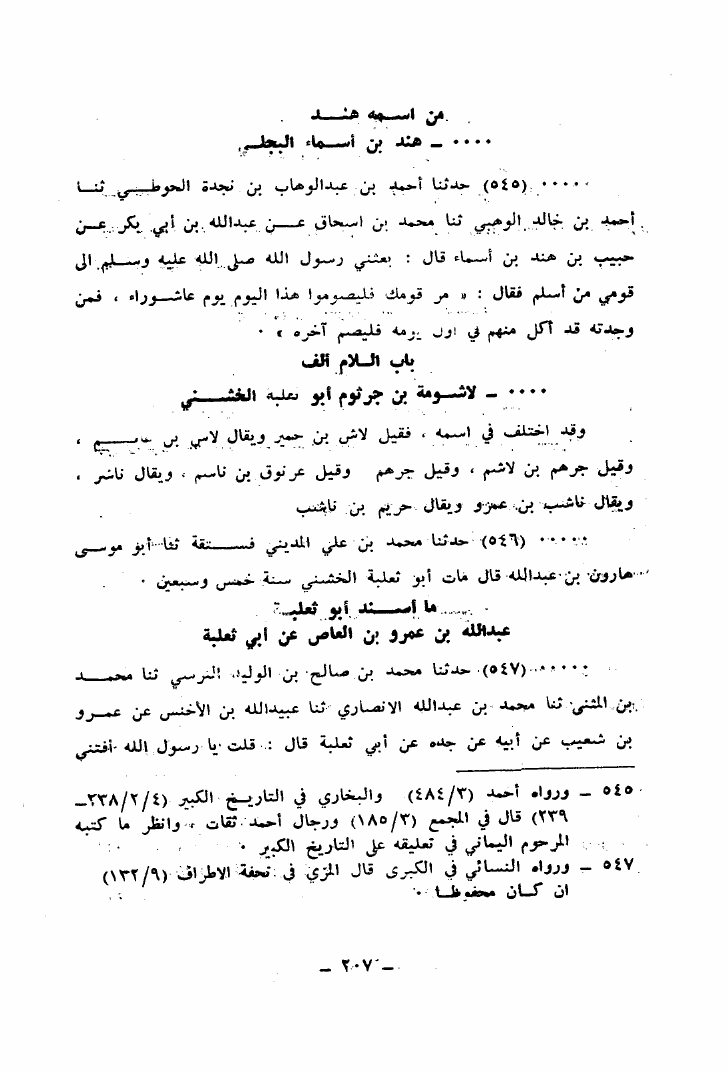 من اسمه هند
٠٠٠٠ ــ هند بن أسماء البجلي
٠٠٠٠٠ (٥٤٥) حدثنا أحمد بن عبدالوهاب بن نجدة الحوطي ثنا
أحمد بن خالد الوهبي ثنا محمد بن اسحاق عن عبدالله بن أبي بكر عن
حبيب بن هند بن أسماء قال : بعثني رسول الله صلى الله عليه وسلم الى
قومي من أسلم فقال : « مر قومك فليصوموا هذا اليوم يوم عاشوراء ، فمن
وجدته قد أكل منهم في اول يومه فليصم آخره » ٠
باب اللام ألف
٠٠٠٠ ــ لاشومة بن جرثوم أبو ثعلبة الخشني
وقد اختلف في اسمه ، فقيل لاش بن حمير ويقال لاس بن ،
وقيل جرهم بن لاشم ، وقيل جرهم وقيل عرنوق بن ناسم ، ويقال ناشر ،
ويقال ناشب بن عمرو ويقال حريم بن ناشب
٠٠٠٠٠ (٥٤٦) حدثنا محمد بن علي المديني فستقة ثنا أبو موسى
هارون بن عبدالله قال مات أبو ثعلبة الخشني سنة خمس وسبعين ٠
ما أسند أبو ثعلبة
عبدالله بن عمرو بن العاص عن أبي ثعلبة
٠٠٠٠٠ (٥٤٧) حدثنا محمد بن صالح بن الوليد النرسي ثنا محمد
بن المثنى ثنا محمد بن عبدالله الانصاري ثنا عبيدالله بن الأخنس عن عمرو
بن شعيب عن أبيه عن جده عن أبي ثعلبة قال : قلت يا رسول الله أفتني
٥٤٥ ــ ورواه أحمد (٤٨٤/٣) والبخاري في التاريخ الكبير (٢٣٨/٢/٤ــ
٢٣٩) قال في المجمع (١٨٥/٣) ورجال أحمد ثقات ، وانظر ما كتبه
المرحوم اليماني في تعليقه على التاريخ الكبير ٠
٥٤٧ ــ ورواه النسائي في الكبرى قال المزي في تحفة الاطراف (١٣٢/٩)
ان كان محفوظا ٠
ــ ٢٠٧ ــ